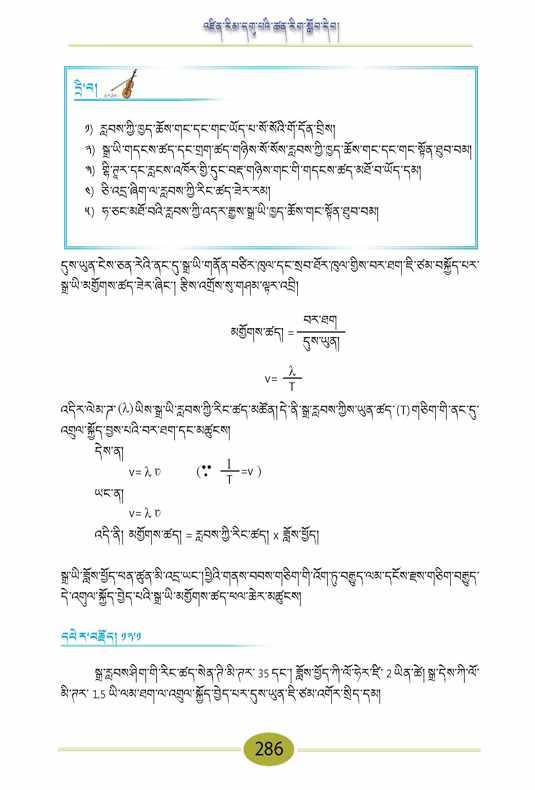 འཛིན་རིམ་དགུ་པའི་ཚན་རིག་སློབ་དེབ།
དྲི་བ།
༡) རླབས་ཀྱི་ཁྱད་ཆོས་གང་དང་གང་ཡོད་པ་སོ་སོའི་གོ་དོན་བྲིས།
༢) སྒྲ་ཡི་གདངས་ཚད་དང་དྲག་ཚད་གཉིས་སོ་སོས་རླབས་ཀྱི་ཁྱད་ཆོས་གང་དང་གང་སྟོན་ཐུབ་བམ།
༣) གྷི་ཊར་དང་རླངས་འཁོར་གྱི་དུང་བརྡ་གཉིས་གང་གི་གདངས་ཚད་མཐོ་བ་ཡོད་དམ།
༤) ཅི་འདྲ་ཞིག་ལ་རླབས་ཀྱི་རིང་ཚད་ཟེར་རམ།
༥) ཧ་ཅང་མཐོ་བའི་རླབས་ཀྱི་འདར་རྒྱས་སྒྲ་ཡི་ཁྱད་ཆོས་གང་སྟོན་ཐུབ་བམ།
དུས་ཡུན་ངེས་ཅན་རེའི་ནང་དུ་སྒྲ་ཡི་གནོན་བཙིར་ཁུལ་དང་སྲབ་ཐོར་ཁུལ་གྱིས་བར་ཐག་ཇི་ཙམ་བསྐྱོད་པར་
སྒྲ་ཡི་མགྱོགས་ཚད་ཟེར་ཞིང་། རྩིས་འགྲོས་སུ་གཤམ་ལྟར་འབྲི།
མགྱོགས་ཚད། = བར་ཐག
དུས་ཡུན།
v= λ
T
འདིར་ལེམ་ཌ་ (λ) ཡིས་སྒྲ་ཡི་རླབས་ཀྱི་རིང་ཚད་མཚོན། དེ་ནི་སྒྲ་རླབས་ཀྱིས་ཡུན་ཚད་ (T) གཅིག་གི་ནང་དུ་
འགྲུལ་སྐྱོད་བྱས་པའི་བར་ཐག་དང་མཚུངས།
དེས་ན།
v= λ υ (∵ 1
T =v )
ཡང་ན།
v= λ υ
འདི་ནི། མགྱོགས་ཚད། = རླབས་ཀྱི་རིང་ཚད། x ཟློས་ཕྱོད།
སྒྲ་ཡི་ཟློས་ཕྱོད་ཕན་ཚུན་མི་འདྲ་ཡང་། ཕྱིའི་གནས་བབས་གཅིག་གི་འོག་ཏུ་བརྒྱུད་ལམ་དངོས་རྫས་གཅིག་བརྒྱུད་
དེ་འགུལ་སྐྱོད་བྱེད་པའི་སྒྲ་ཡི་མགྱོགས་ཚད་ཕལ་ཆེར་མཚུངས།
དཔེར་བརྗོད། ༡༢.༡
སྒྲ་རླབས་ཤིག་གི་རིང་ཚད་སེན་ཊི་མི་ཊར་ 35 དང་། ཟློས་ཕྱོད་ཀི་ལོ་ཧེར་ཛི་ 2 ཡིན་ཚེ། སྒྲ་དེས་ཀི་ལོ་
མི་ཊར་ 1.5 ཡི་ལམ་ཐག་ལ་འགྲུལ་སྐྱོད་བྱེད་པར་དུས་ཡུན་ཇི་ཙམ་འགོར་སྲིད་དམ།
286